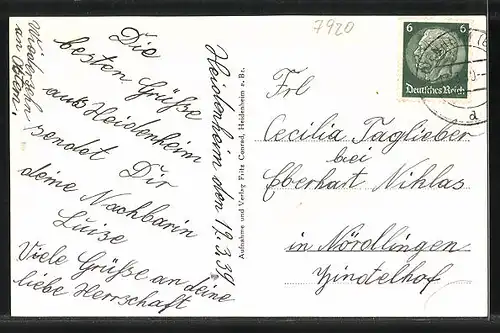 7920
Wiedersehn
an Ostern!
Die
besten Grüße
aus Heidenheim
sendet Dir
deine Nachbarin
Luise
Viele Grüße an deine
liebe Herrschaft
Heidenheim den 19.3.39
Aufnahme und Verlag Fritz Conrad, Heidenheim a. Br.
6 6
Deutsches Reich
a
Frl
Cecilia Taglieber
bei
Eberhart Nihlas
in Nördlingen